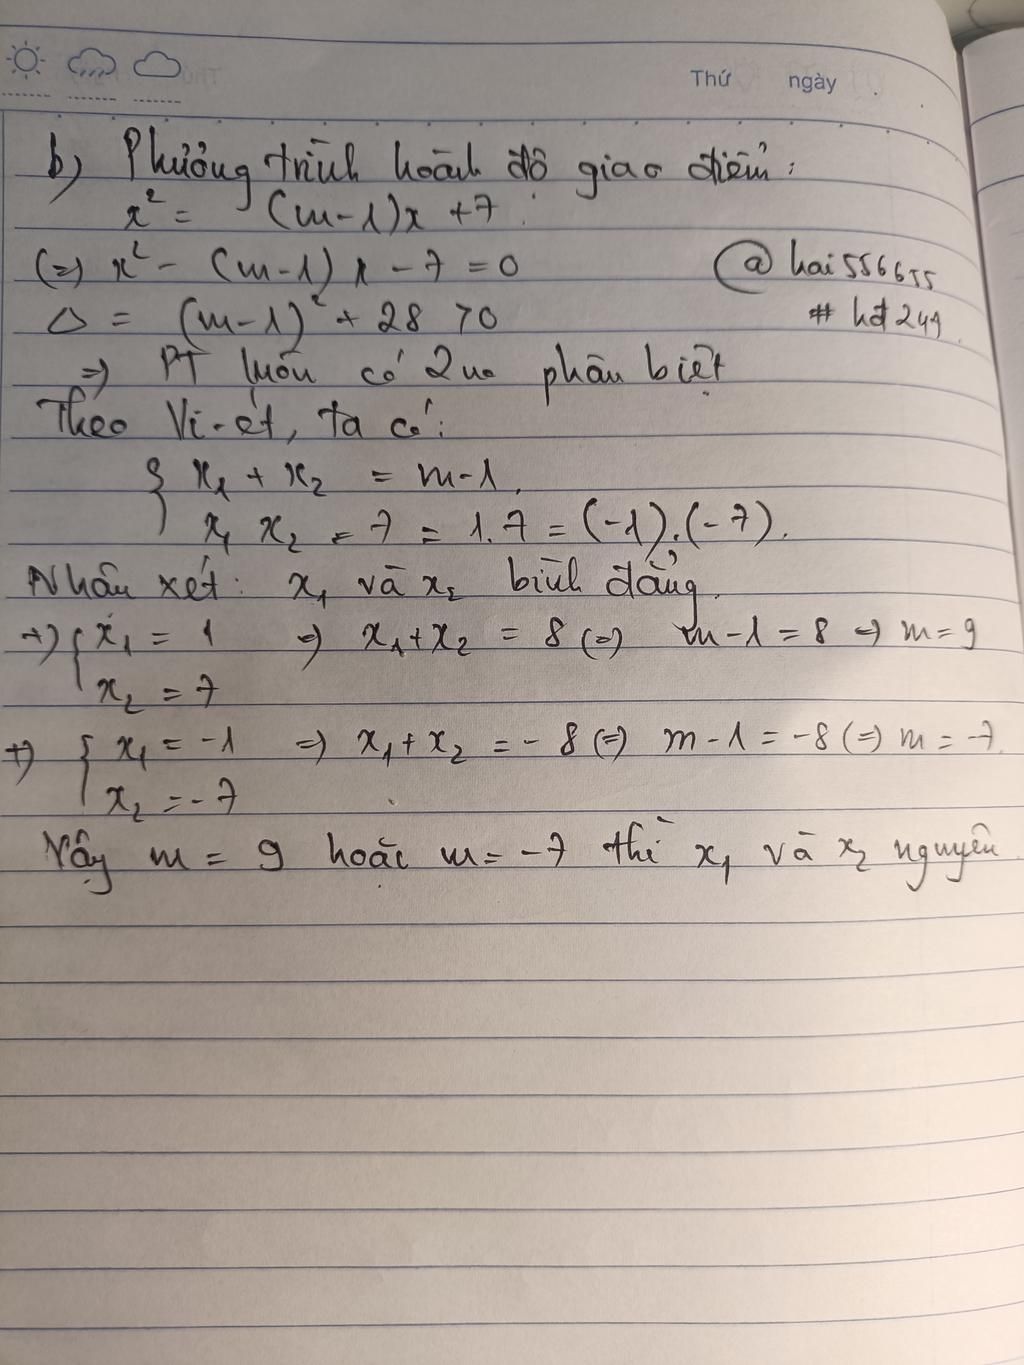 Thứ ngày
b) Phương trình hoành độ giao điểm:
x² = (m-1)x + 7
(=) x² - (m-1) x - 7 = 0
@hai556655
Δ = (m-1)² + 28 > 0
# hđ 249
=) PT luôn có 2 no phân biệt
Theo Vi-ét, ta có:
{ x₁ + x₂ = m-1.
x₁ x₂ = 7 = 1.7 = (-1).(-7).
Nhận xét: x₁ và x₂ bình đẳng.
+) { x₁ = 1 =) x₁+x₂ = 8 (=) m-1 = 8 =) m = 9
x₂ = 7
+) { x₁ = -1 =) x₁+x₂ = -8 (=) m-1 = -8 (=) m = -7
x₂ = -7
Vậy m = 9 hoặc m = -7 thì x₁ và x₂ nguyên